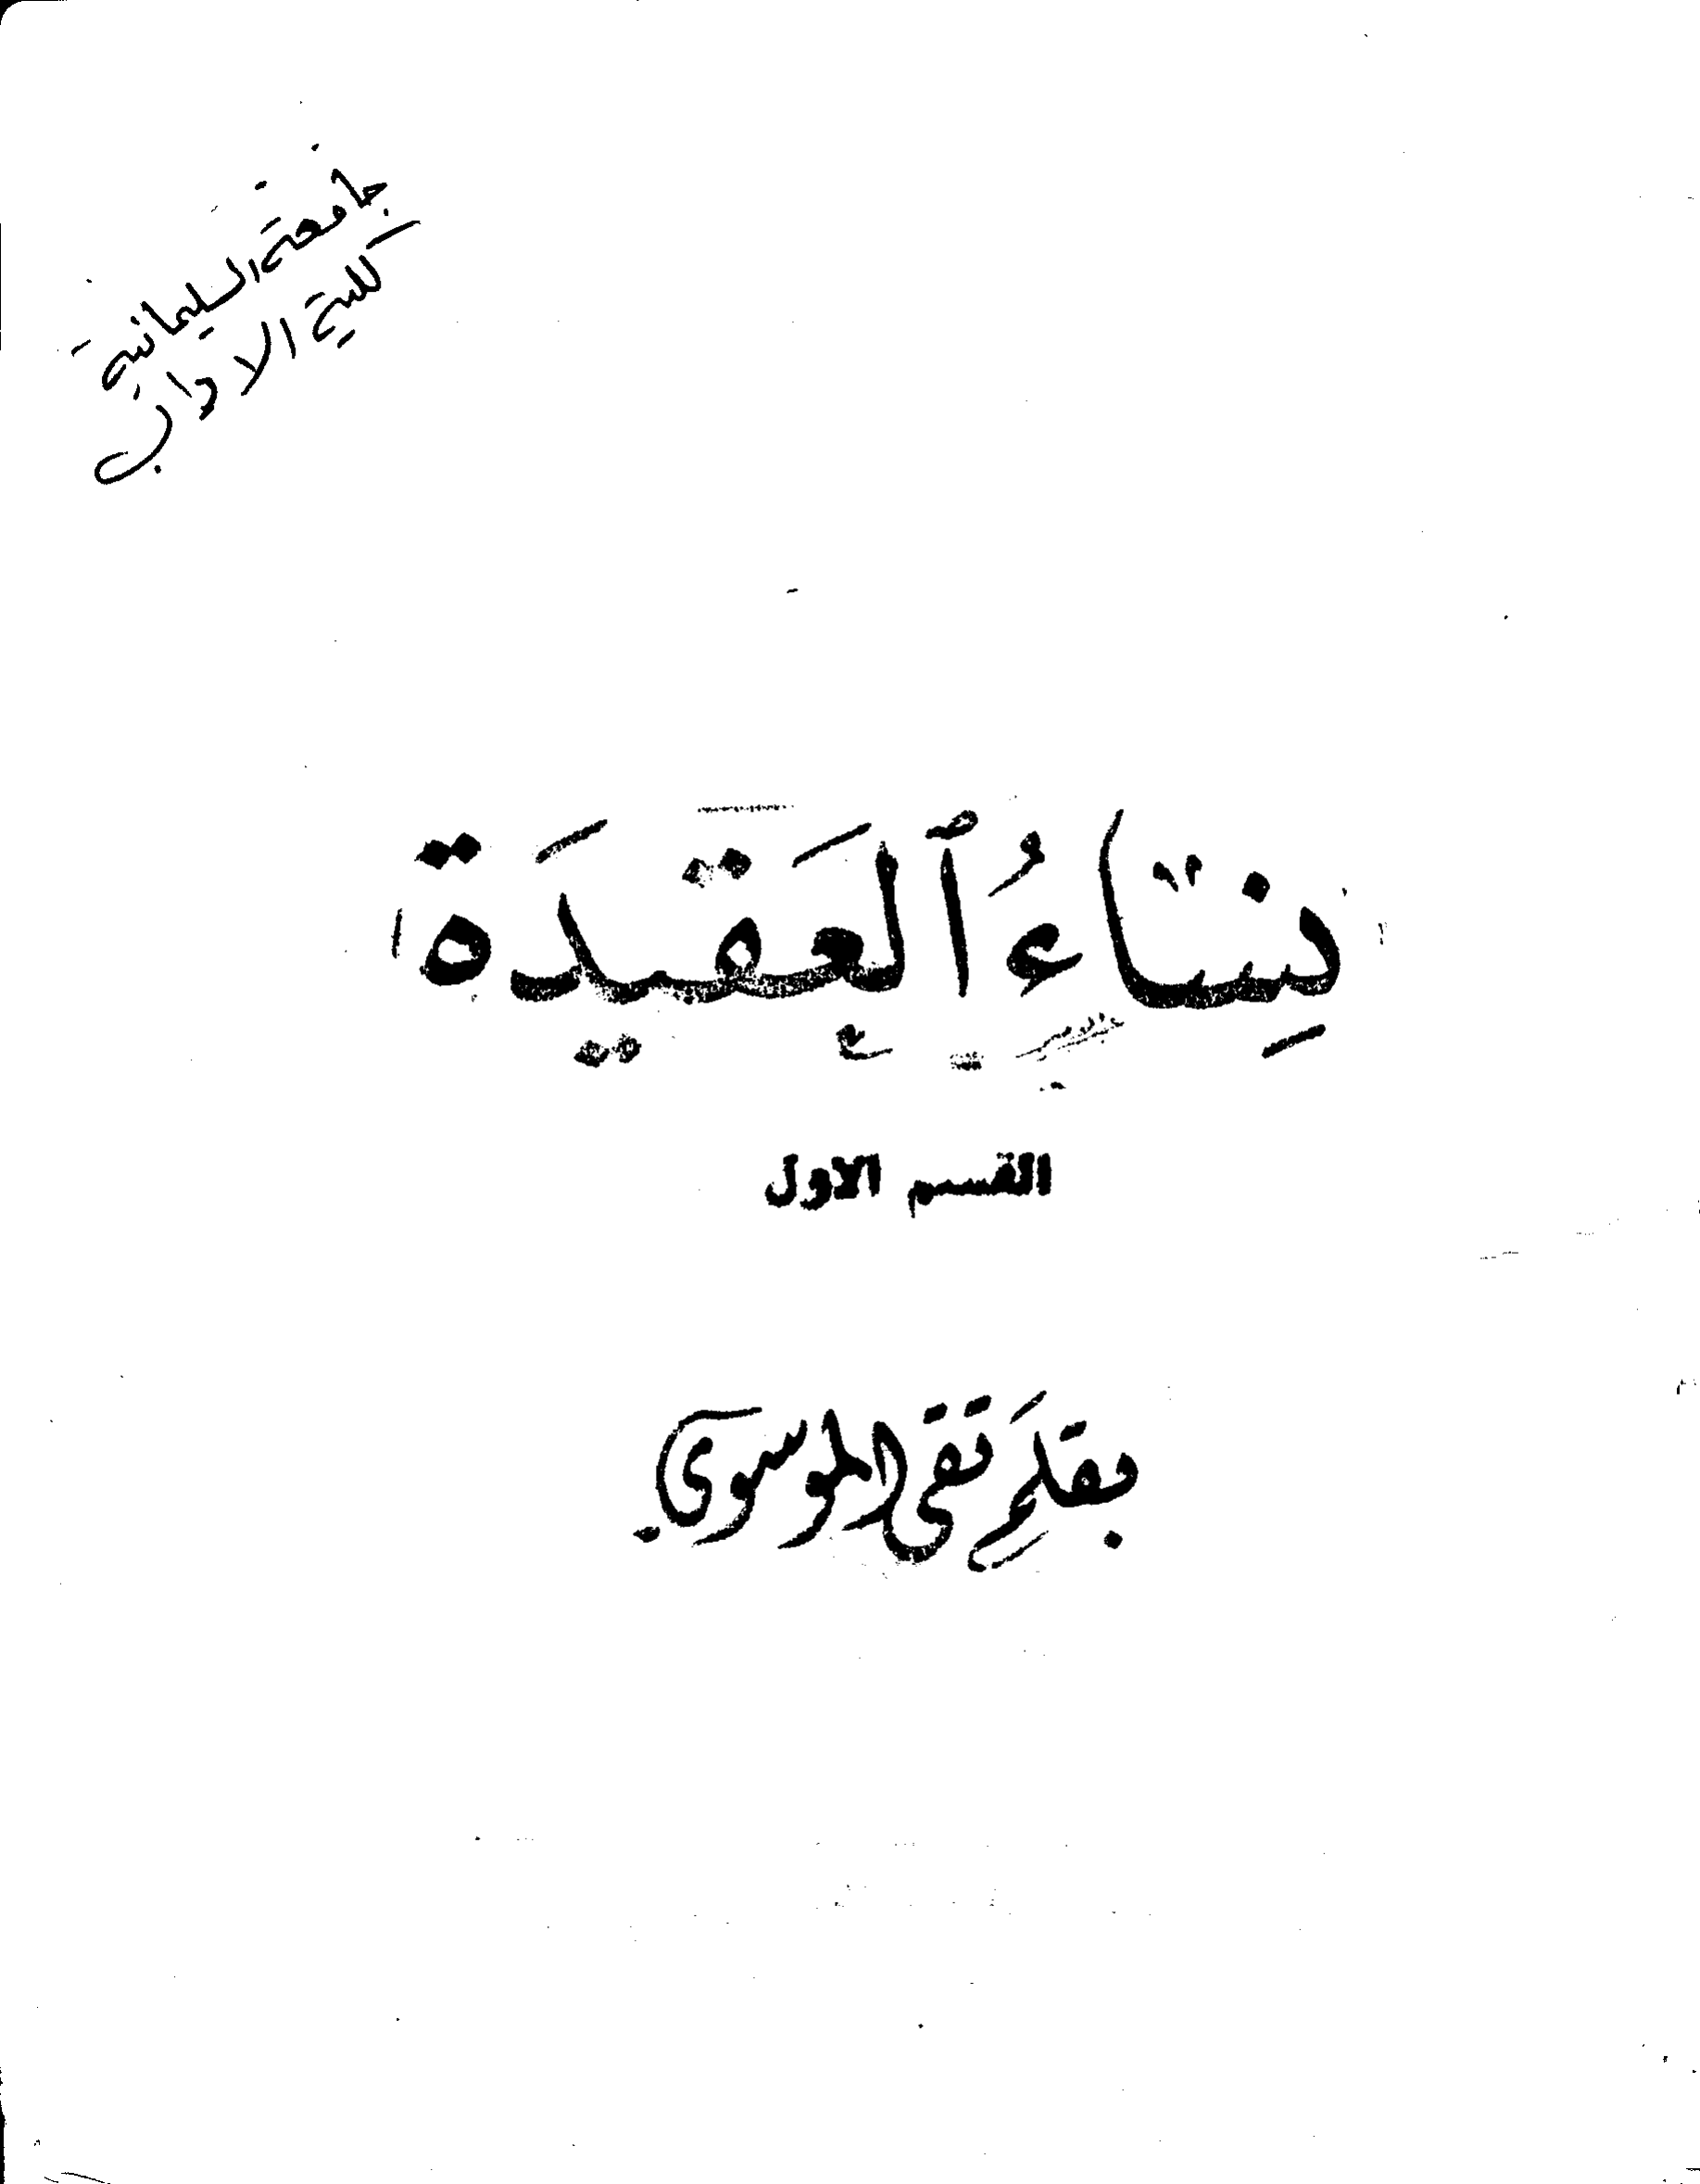 جامعة السليمانية
كلية الاداب
بِنَاءُ ٱلعَقِيدَة
القسم الاول
بقلم تقى الموسوي